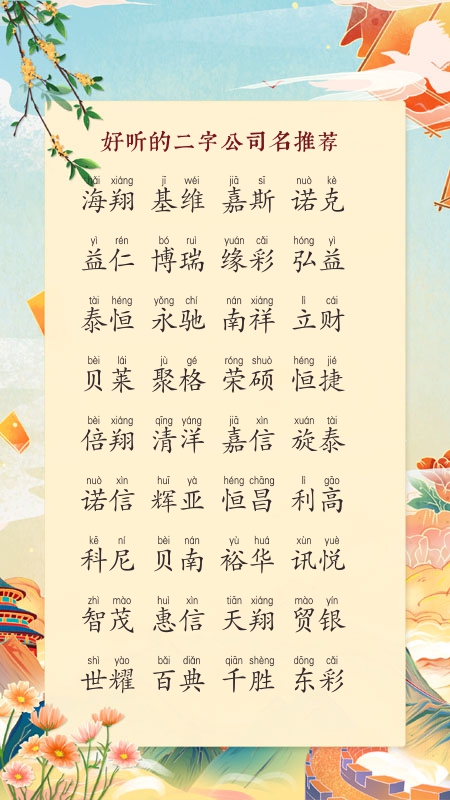 好听的二字公司名推荐
hǎi xiáng jī wéi jiā sī nuò kè
海翔 基维 嘉斯 诺克
yì rén bó ruì yuán cǎi hóng yì
益仁 博瑞 缘彩 弘益
tài héng yǒng chí nán xiáng lì cái
泰恒 永驰 南祥 立财
bèi lái jù gé róng shuò héng jié
贝莱 聚格 荣硕 恒捷
bèi xiáng qīng yáng jiā xìn xuán tài
倍翔 清洋 嘉信 旋泰
nuò xìn huī yà héng chāng lì gāo
诺信 辉亚 恒昌 利高
kē ní bèi nán yù huá xùn yuè
科尼 贝南 裕华 讯悦
zhì mào huì xìn tiān xiáng mào yín
智茂 惠信 天翔 贸银
shì yào bǎi diǎn qiān shèng dōng cǎi
世耀 百典 千胜 东彩